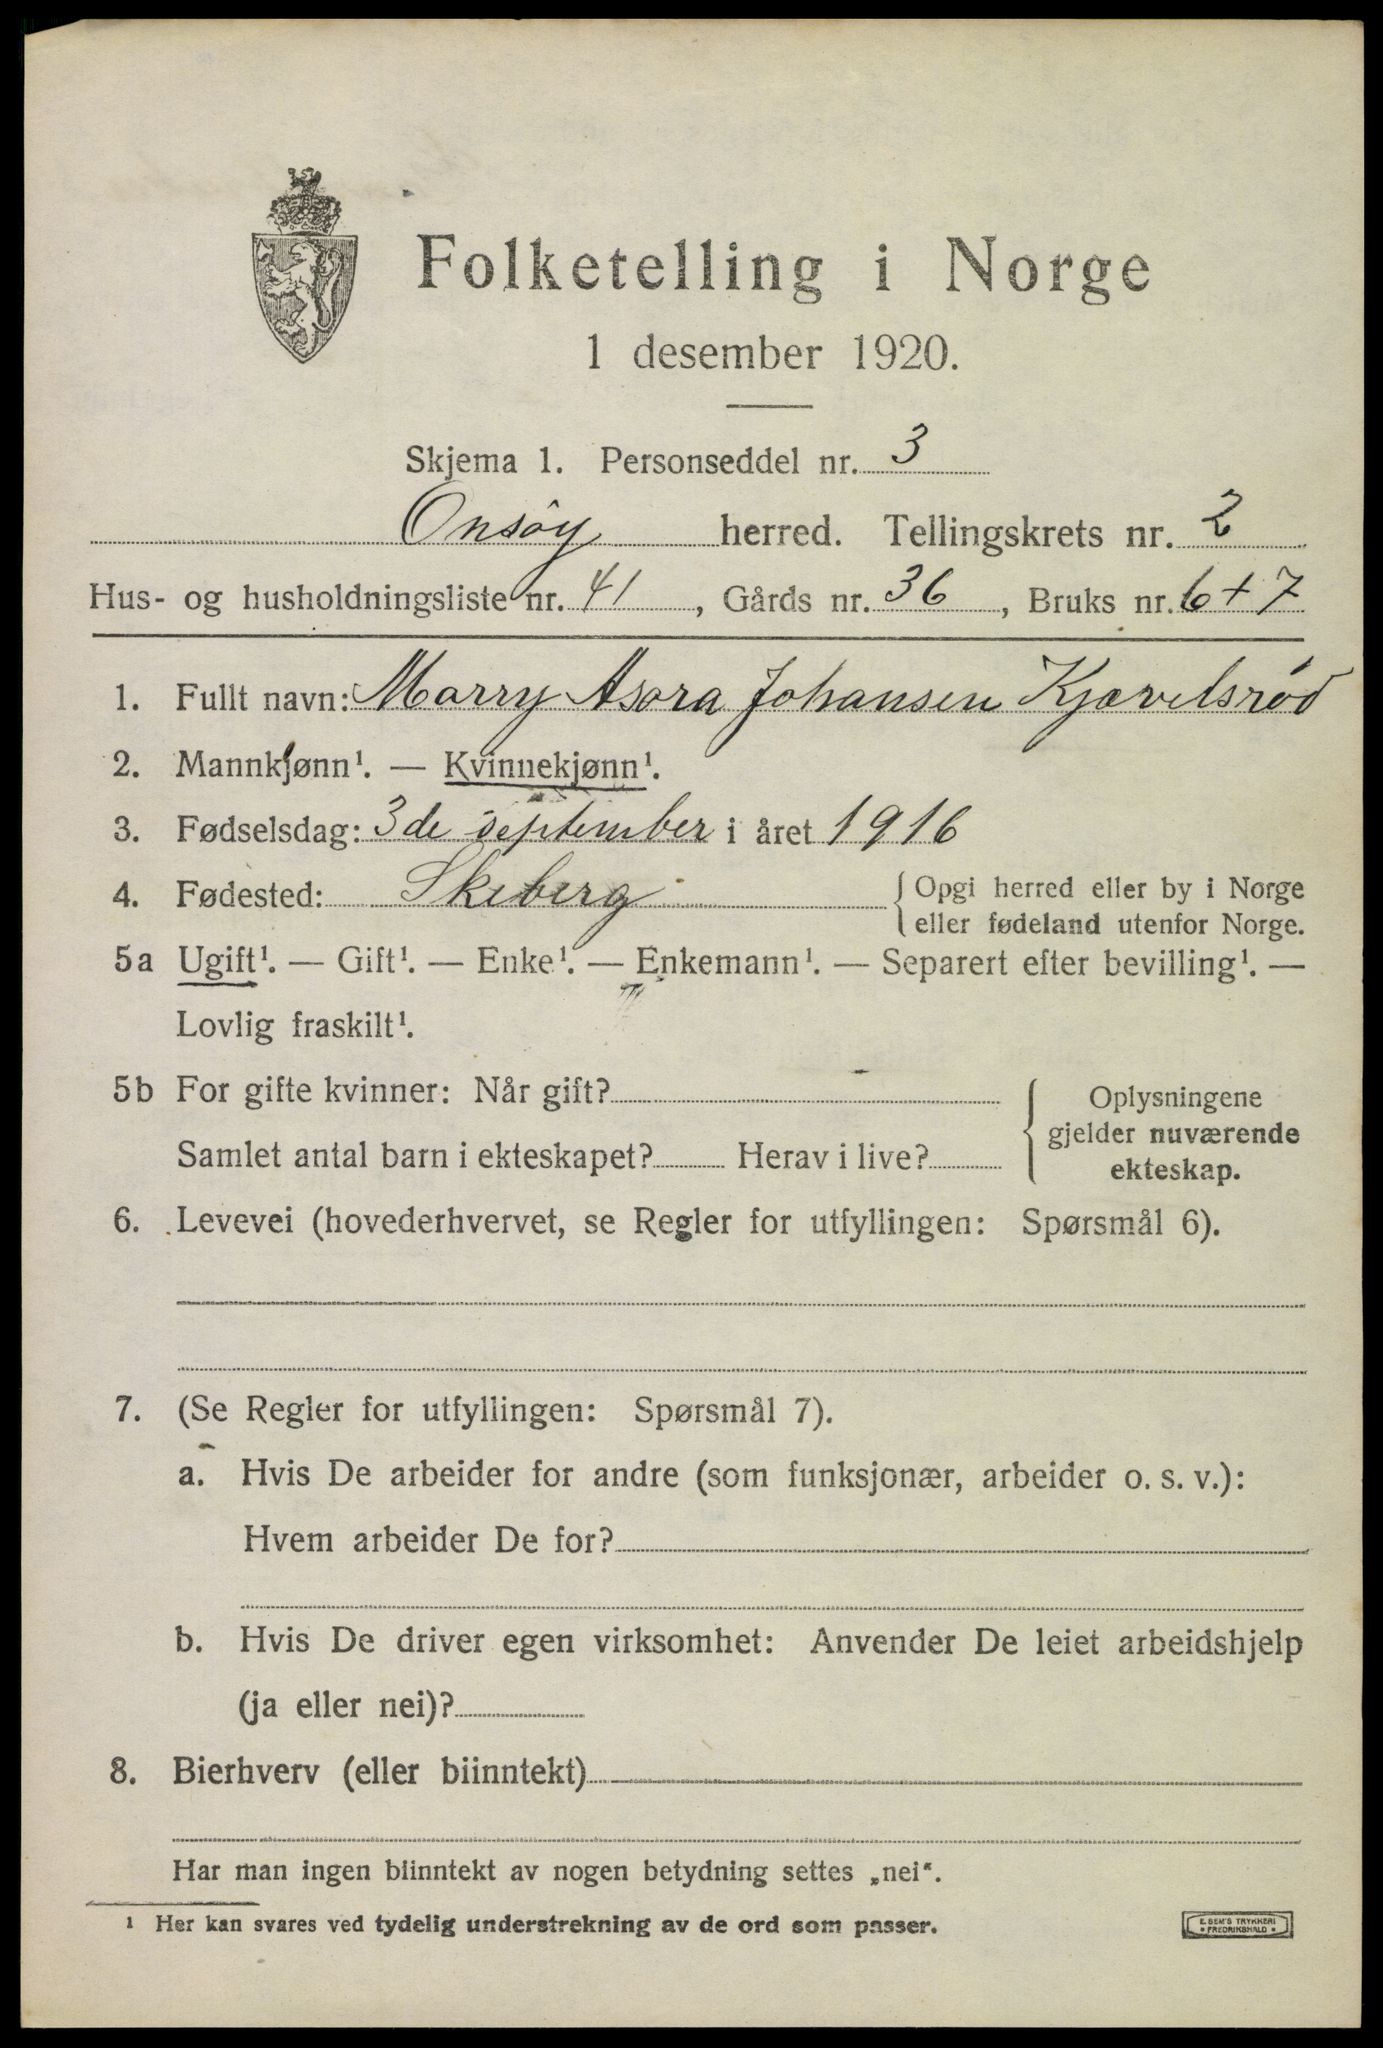 Folketelling i Norge
1 desember 1920.
Skjema 1. Personseddel nr. 3
Onsøy herred. Tellingskrets nr. 2
Hus- og husholdningsliste nr. 41, Gårds nr. 36, Bruks nr. 6+7
1. Fullt navn: Marry Asora Johansen Kjævelsrød
2. Mannkjønn¹. — Kvinnekjønn¹.
3. Fødselsdag: 3de september i året 1916
4. Fødested: Skeberg { Opgi herred eller by i Norge
eller fødeland utenfor Norge.
5a Ugift¹. — Gift¹. — Enke¹. — Enkemann¹. — Separert efter bevilling¹. —
Lovlig fraskilt¹.
5b For gifte kvinner: Når gift?
Samlet antal barn i ekteskapet? Herav i live?
Oplysningene
gjelder nuværende
ekteskap.
6. Levevei (hovederhvervet, se Regler for utfyllingen: Spørsmål 6).
7. (Se Regler for utfyllingen: Spørsmål 7).
a. Hvis De arbeider for andre (som funksjonær, arbeider o. s. v.):
Hvem arbeider De for?
b. Hvis De driver egen virksomhet: Anvender De leiet arbeidshjelp
(ja eller nei)?
8. Bierhverv (eller biinntekt)
Har man ingen biinntekt av nogen betydning settes „nei“.
¹ Her kan svares ved tydelig understrekning av de ord som passer.
E. SEM'S TRYKKERI
• FREDRIKSHALD •